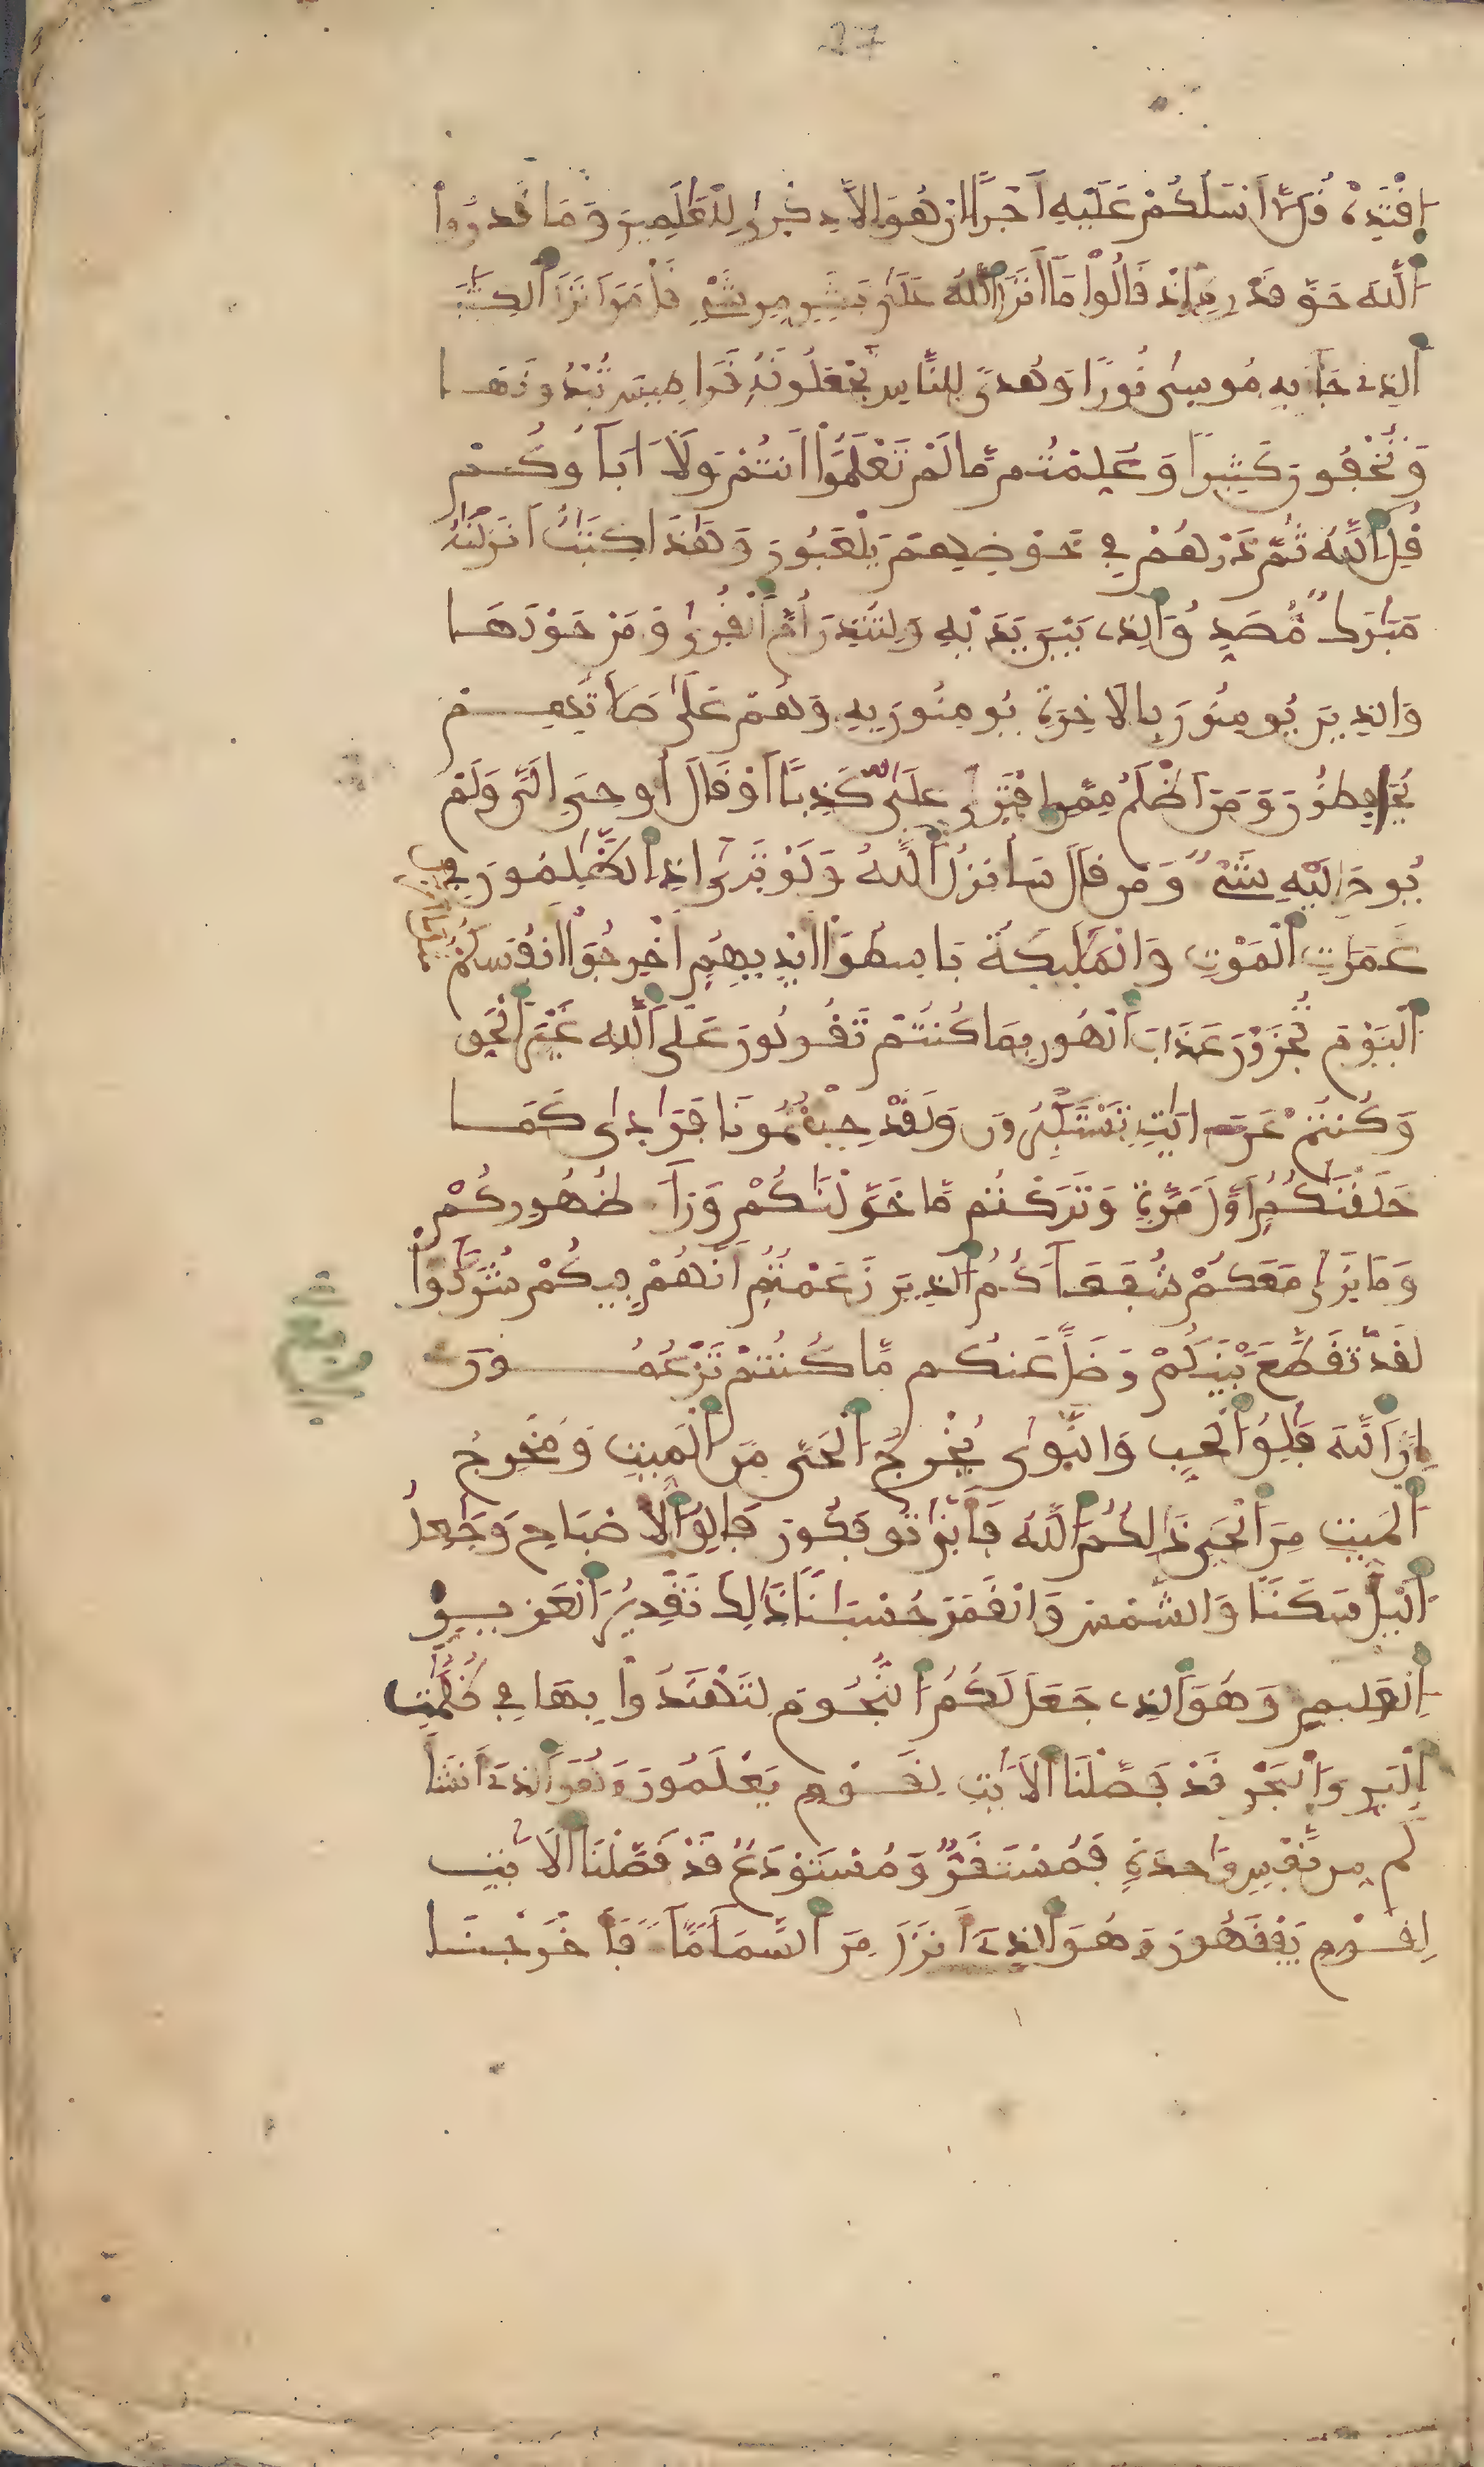 27
اِقْتَدِهْ قُل لَّا أَسْـَٔلُكُمْ عَلَيْهِ أَجْراً اِنْ هُوَ إِلَّا ذِكْرىٰ لِلْعَٰلَمِينَ وَمَا قَدَرُواْ
اَللَّهَ حَقَّ قَدْرِهِ إِذْ قَالُواْ مَا أَنزَلَ اَللَّهُ عَلَىٰ بَشَرٍ مِّن شَےْءٍ قُلْ مَنَ اَنزَلَ اَلْكِتَٰبَ
اَلذِے جَآءَ بِهِ مُوسىٰ نُوراً وَهُدىً لِّلنَّاسِ تَجْعَلُونَهُ قَرَاطِيسَ تُبْدُونَهَا
وَتُخْفُونَ كَثِيراً وَعُلِّمْتُم مَّا لَمْ تَعْلَمُواْ أَنتُمْ وَلَا ءَابَآؤُكُمْ
قُلِ اِللَّهُ ثُمَّ ذَرْهُمْ فِي خَوْضِهِمْ يَلْعَبُونَ وَهَٰذَا كِتَٰبٌ اَنزَلْنَٰهُ
مُبَٰرَكٌ مُّصَدِّقُ اُلذِے بَيْنَ يَدَيْهِ وَلِتُنذِرَ أُمَّ اَلْقُرىٰ وَمَنْ حَوْلَهَا
وَالذِينَ يُومِنُونَ بِالَاخِرَةِ يُومِنُونَ بِهِ وَهُمْ عَلَىٰ صَلَاتِهِمْ
يُحَافِظُونَ وَمَنَ اَظْلَمُ مِمَّنِ اِفْتَرىٰ عَلَى اَللَّهِ كَذِباً اَوْ قَالَ أُوحِيَ إِلَيَّ وَلَمْ
يُوحَ إِلَيْهِ شَےْءٌ وَمَن قَالَ سَأُنزِلُ اَللَّهُ وَلَوْ تَرىٰ إِذِ اِلظَّٰلِمُونَ فِي
غَمَرَٰتِ اِلْمَوْتِ وَالْمَلَٰٓئِكَةُ بَاسِطُواْ أَيْدِيهِمْ أَخْرِجُواْ أَنفُسَكُمُ
اُلْيَوْمَ تُجْزَوْنَ عَذَابَ اَلْهُونِ بِمَا كُنتُمْ تَقُولُونَ عَلَى اَللَّهِ غَيْرَ اَلْحَقِّ
وَكُنتُمْ عَنَ ايَٰتِهِ تَسْتَكْبِرُونَ وَلَقَدْ جِئْتُمُونَا فُرَٰدىٰ كَمَا
خَلَقْنَٰكُمُ أَوَّلَ مَرَّةٍ وَتَرَكْتُم مَّا خَوَّلْنَٰكُمْ وَرَآءَ ظُهُورِكُمْ
وَمَا نَرىٰ مَعَكُمْ شُفَعَآءَكُمُ اُلذِينَ زَعَمْتُمُ أَنَّهُمْ فِيكُمْ شُرَكَٰٓؤُاْ
لَقَد تَّقَطَّعَ بَيْنَكُمْ وَضَلَّ عَنكُم مَّا كُنتُمْ تَزْعُمُونَ
ربع
إِنَّ اَللَّهَ فَٰلِقُ اُلْحَبِّ وَالنَّوىٰ يُخْرِجُ اُلْحَيَّ مِنَ اَلْمَيِّتِ وَمُخْرِجُ
اُلْمَيِّتِ مِنَ اَلْحَيِّ ذَٰلِكُمُ اُللَّهُ فَأَنّىٰ تُوفَكُونَ فَالِقُ اُلِاصْبَاحِ وَجَٰعِلُ
اُلَّيْلِ سَكَناً وَالشَّمْسَ وَالْقَمَرَ حُسْبَاناً ذَٰلِكَ تَقْدِيرُ اُلْعَزِيزِ
اِلْعَلِيمِ وَهُوَ اَلذِے جَعَلَ لَكُمُ اُلنُّجُومَ لِتَهْتَدُواْ بِهَا فِي ظُلُمَٰتِ
اِلْبَرِّ وَالْبَحْرِ قَدْ فَصَّلْنَا اَلَايَٰتِ لِقَوْمٍ يَعْلَمُونَ وَهُوَ اَلذِے أَنشَأَ
كُم مِّن نَّفْسٍ وَٰحِدَةٍ فَمُسْتَقَرٌّ وَمُسْتَوْدَعٌ قَدْ فَصَّلْنَا اَلَايَٰتِ
لِقَوْمٍ يَفْقَهُونَ وَهُوَ اَلذِے أَنزَلَ مِنَ اَلسَّمَآءِ مَآءً فَأَخْرَجْنَا